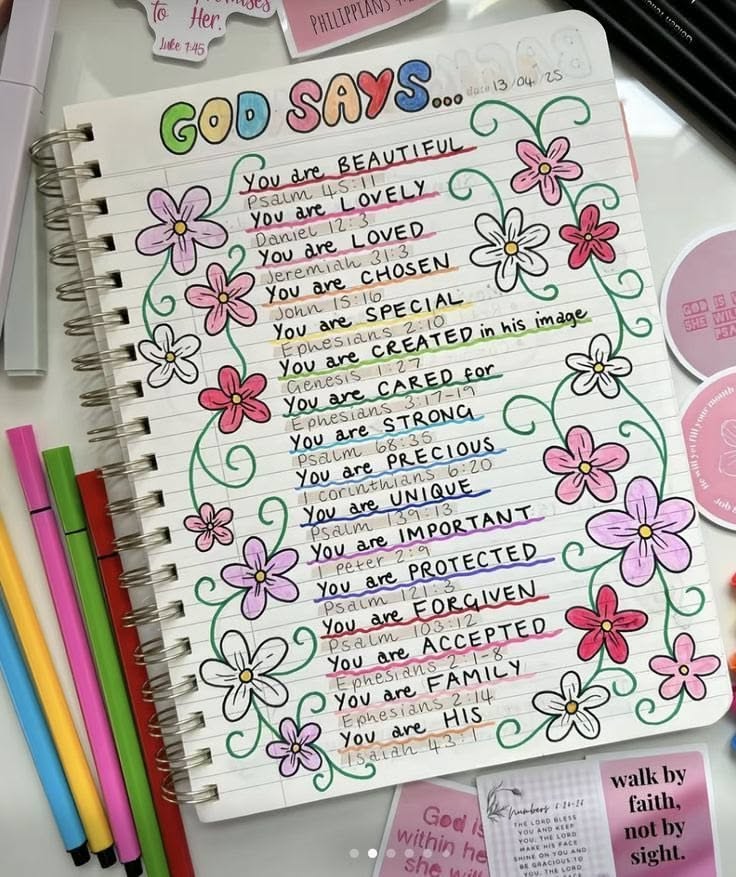 to Her.
Luke 1:45
PHILIPPIANS
GOD SAYS...
date 13/04/25
You are BEAUTIFUL
Psalm 45:11
You are LOVELY
Daniel 12:3
You are LOVED
Jeremiah 31:3
You are CHOSEN
John 15:16
You are SPECIAL
Ephesians 2:10
You are CREATED in his image
Genesis 1:27
You are CARED for
Ephesians 3:17-19
You are STRONG
Psalm 68:35
You are PRECIOUS
1 Corinthians 6:20
You are UNIQUE
Psalm 139:13
You are IMPORTANT
1 Peter 2:9
You are PROTECTED
Psalm 121:3
You are FORGIVEN
Psalm 103:12
You are ACCEPTED
Ephesians 2:1-8
You are FAMILY
Ephesians 2:14
You are HIS
Isaiah 43:1
GOD IS
SHE WILL
He will yet fill your mouth
Job 8
God is
within he
she will
Numbers 6:24-26
THE LORD BLESS
YOU AND KEEP
YOU; THE LORD
MAKE HIS FACE
SHINE ON YOU AND
BE GRACIOUS TO
YOU; THE LORD
walk by
faith,
not by
sight.